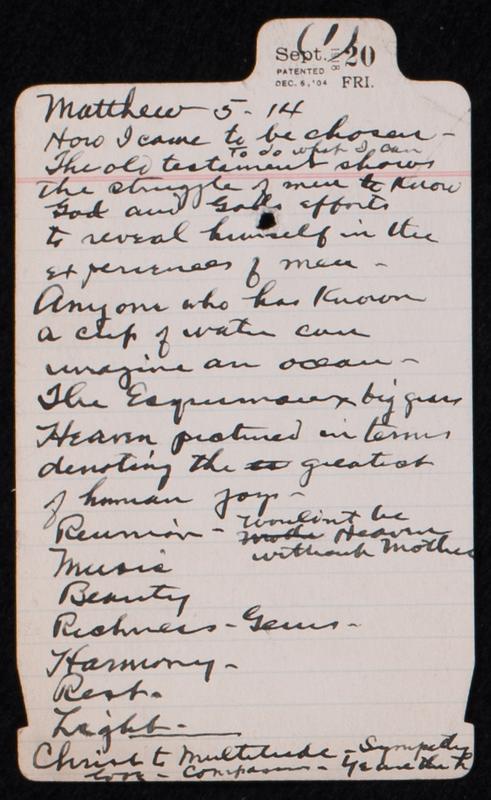 (1)
Sept. 1918 20
PATENTED
DEC. 6, '04 FRI.
Matthew 5-14
How I came to be chosen -
To do what I can
The old testament shows
the struggle of men to know
God and God's efforts
to reveal himself in the
experiences of men -
Anyone who has known
a cup of water can
imagine an ocean -
The Esquimaux big
Heaven pictured in terms
denoting the greatest
of human joys -
Reunion - Wouldn't be
Heaven
without Mother
Music
Beauty
Richness - Gems -
Harmony -
Rest.
Light -
Christ & Multitude - Sympathy
love - Compassion - Ye are the